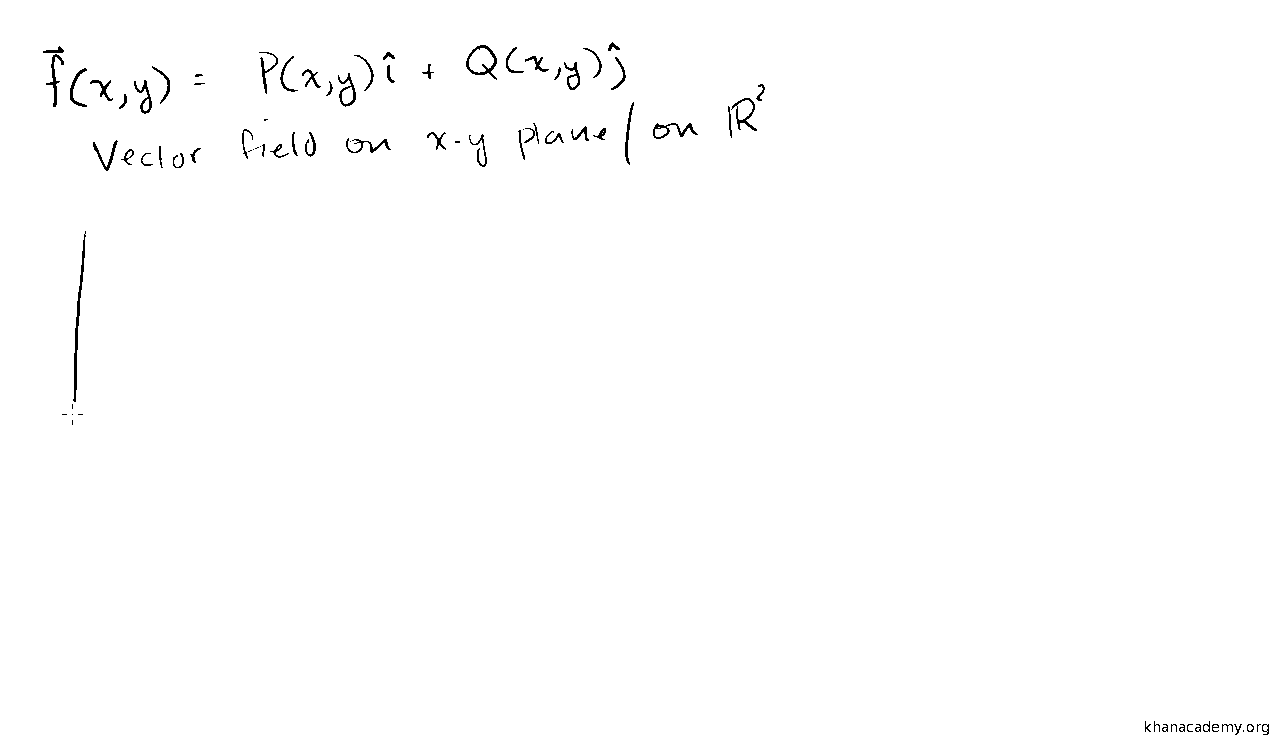 f⃗(x,y) = P(x,y)î + Q(x,y)ĵ
Vector field on x-y plane / on ℝ²
khanacademy.org